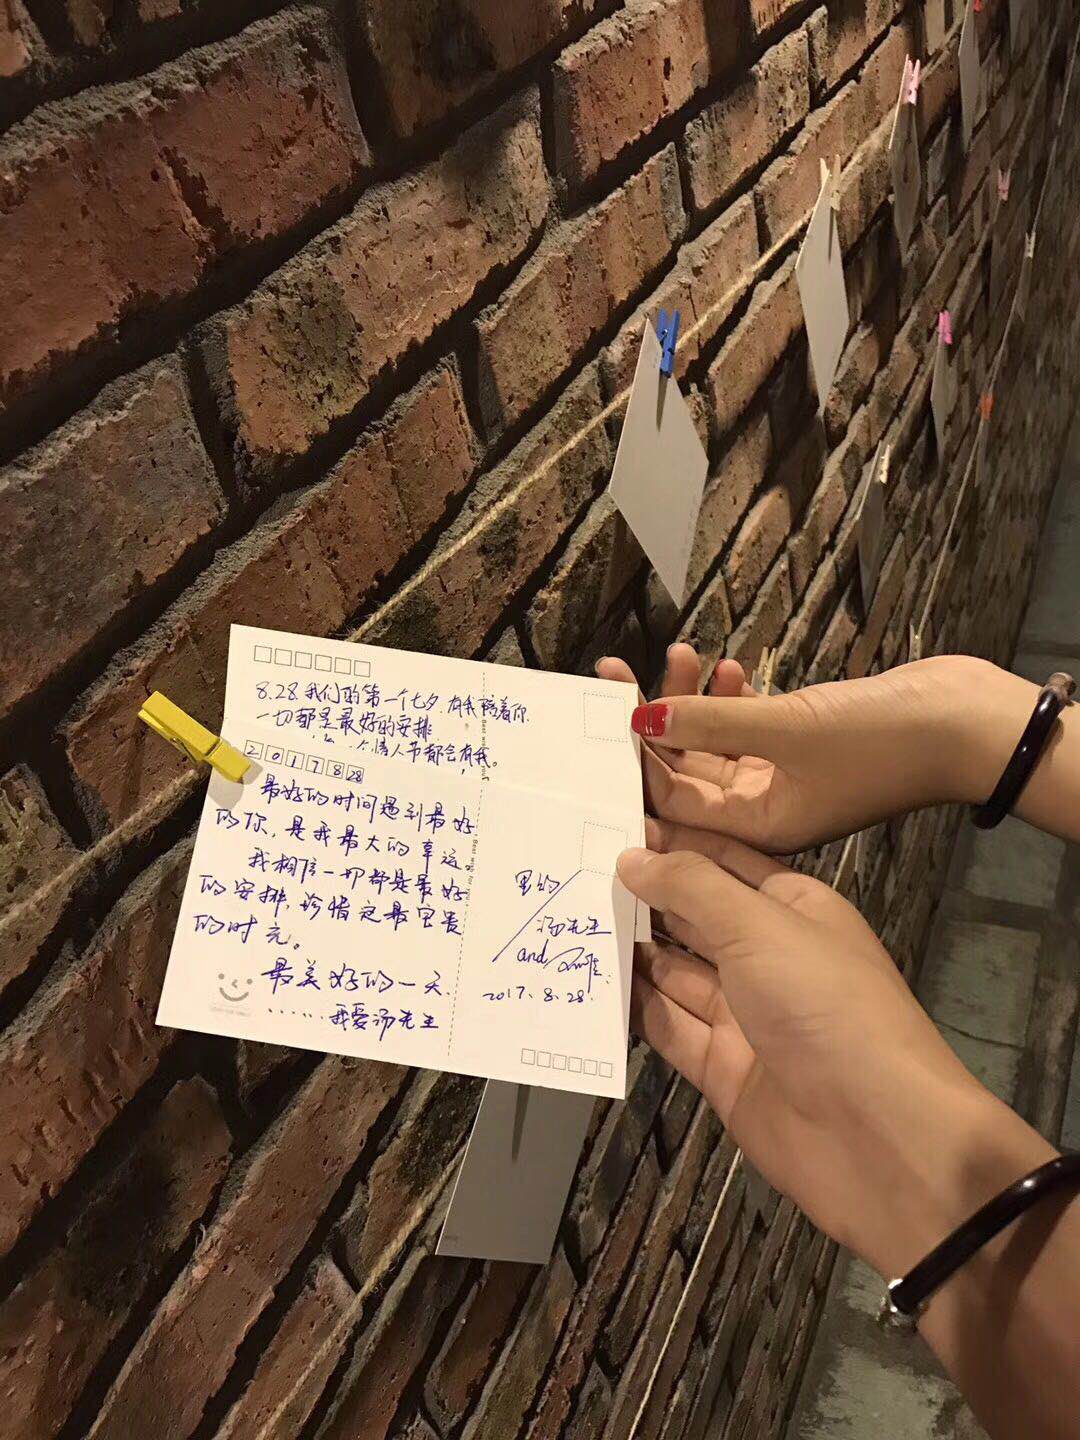 8.28.我们的第一个七夕.有我陪着你.
一切都是最好的安排
个情人节都会有我。
2 0 1 7 8 28
最好的时间遇到最好
的你，是我最大的幸运。
我相信一切都是最好
的安排，珍惜这最宝贵
的时光。
最美好的一天.
......我爱汤先生
汤先生
and
2017.8.28.